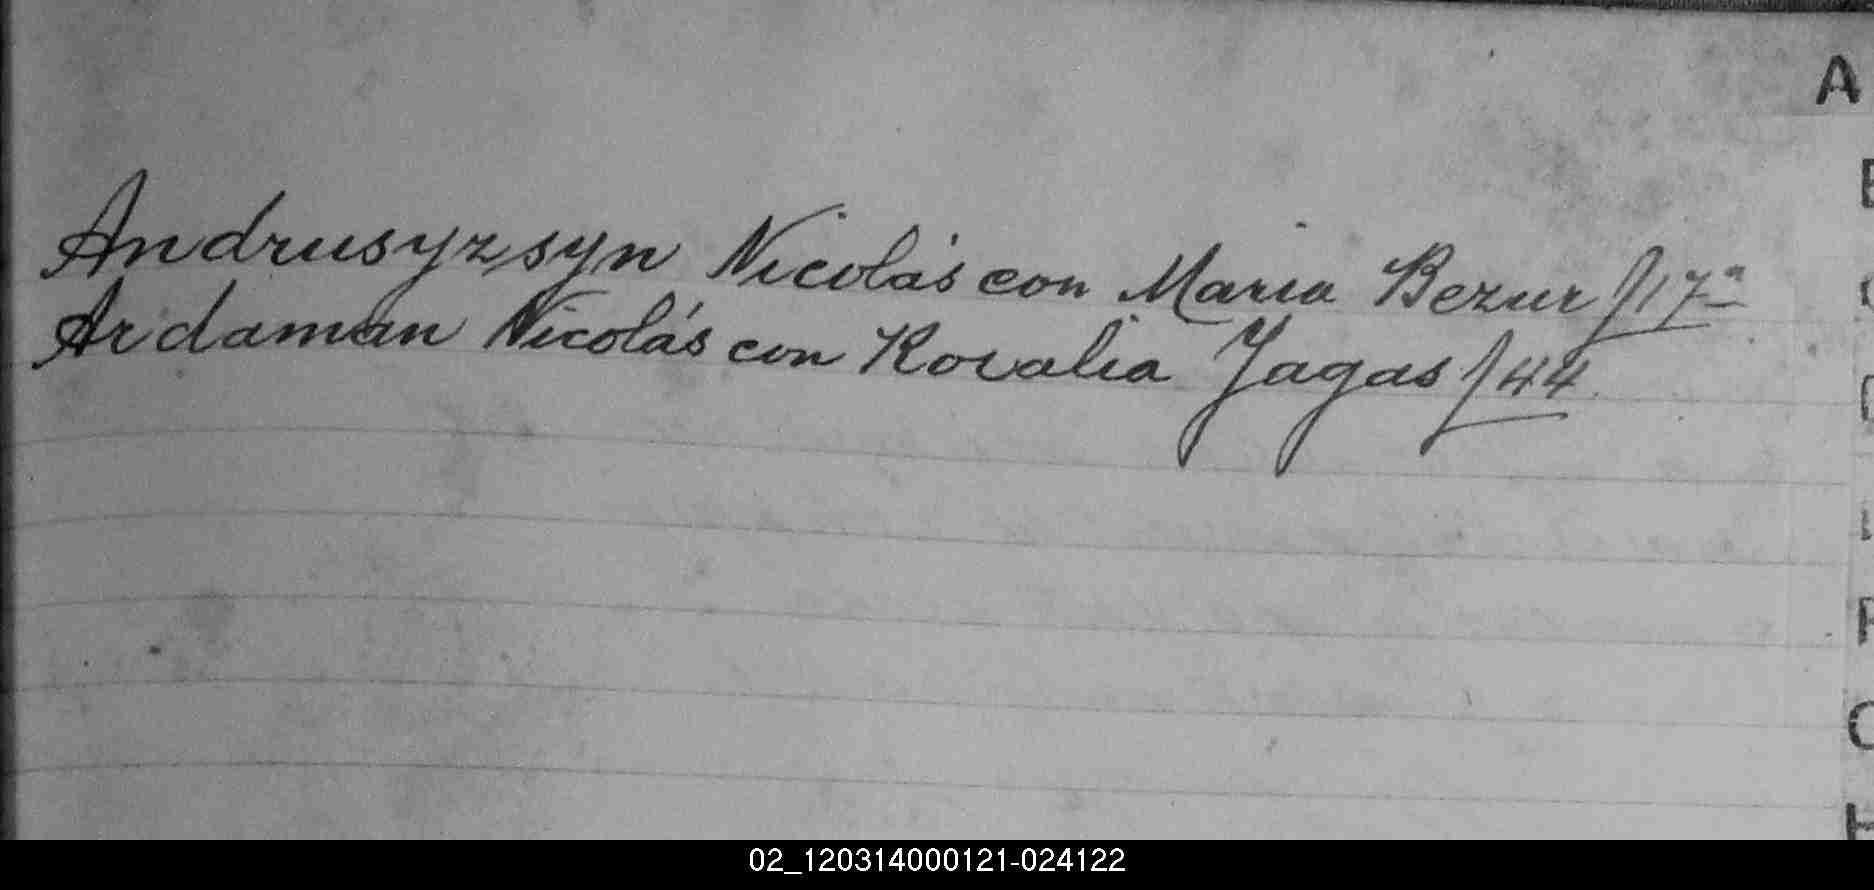 A
Andrusyzsyn Nicolás con Maria Bezur f/17ª
Ardaman Nicolás con Rosalia Jagas f/44
02_120314000121-024122